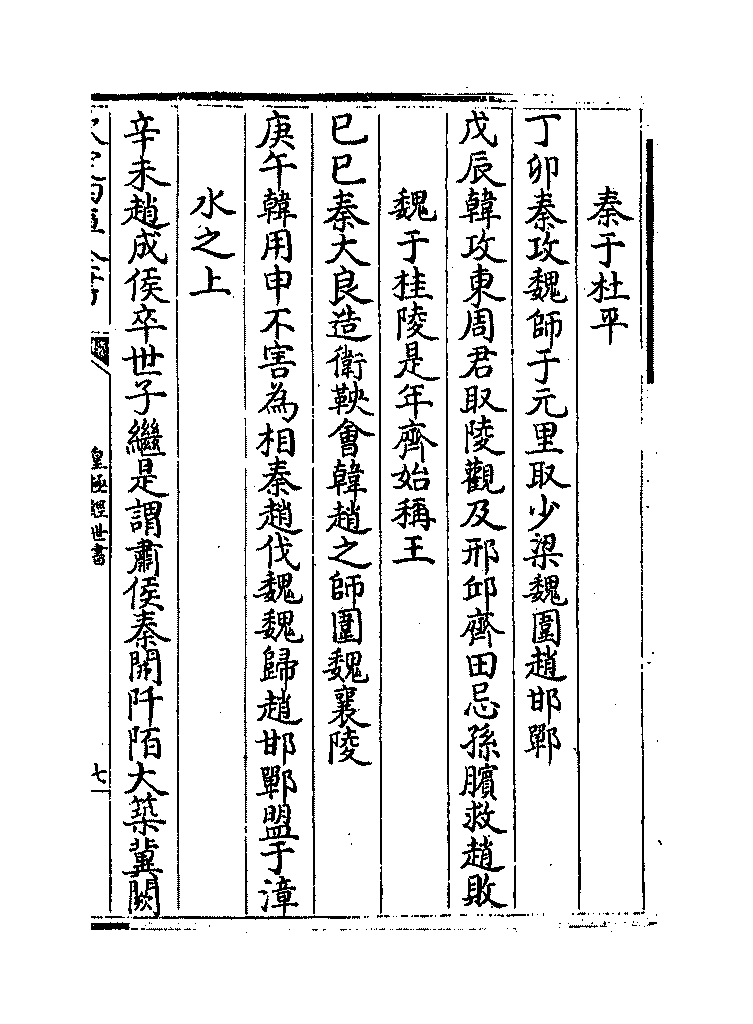 秦于杜平
丁卯秦攻魏師于元里取少梁魏圍趙邯鄲
戊辰韓攻東周君取陵觀及邢邱齊田忌孫臏救趙敗
魏于桂陵是年齊始稱王
已巳秦大良造衛鞅會韓趙之師圍魏襄陵
庚午韓用申不害為相秦趙伐魏魏歸趙邯鄲盟于漳
水之上
辛未趙成侯卒世子繼是謂肅侯秦開阡陌大築冀闕
皇極經世書
七